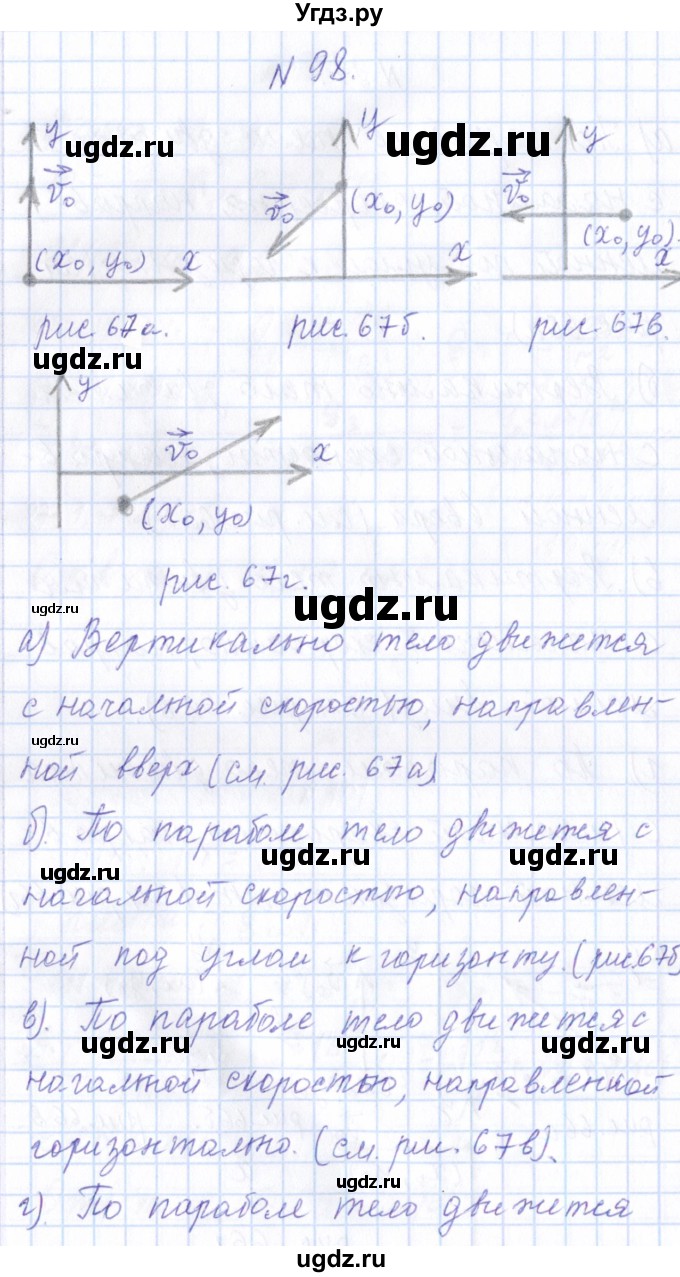 Угдз.ру
N 98.
y
ugdz.ru
v₀
(x₀, y₀)
x
рис. 67а.
y
ugdz.ru
v₀
(x₀, y₀)
x
рис. 67б.
y
v₀
(x₀, y₀)
x
рис. 67в.
ugdz.ru
y
v₀
x
(x₀, y₀)
рис. 67г.
ugdz.ru
ugdz.ru
а) Вертикально тело движется
с начальной скоростью, направлен-
ugdz.ru
ной вверх (см. рис. 67а)
б). По параболе тело движется с
ugdz.ru
ugdz.ru
ugdz.ru
начальной скоростью, направлен-
ной под углом к горизонту. (рис.67б)
в). По параболе тело движется с
ugdz.ru
ugdz.ru
ugdz.ru
начальной скоростью, направленной
горизонтально. (см. рис. 67в).
ugdz.ru
г). По параболе тело движется
ugdz.ru